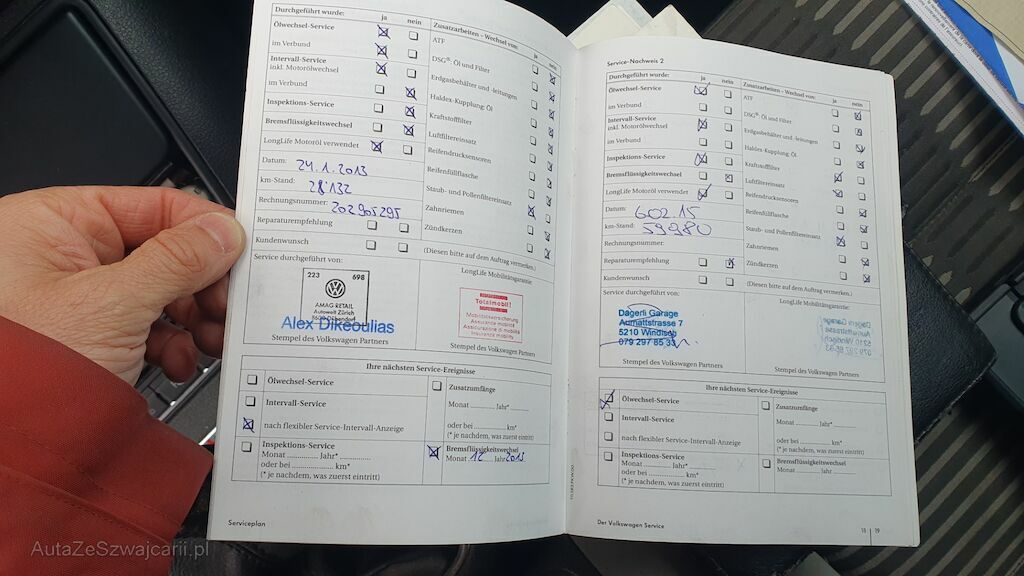 Durchgeführt wurde: ja nein
Ölwechsel-Service
im Verbund
Intervall-Service
inkl. Motorölwechsel
im Verbund
Inspektions-Service
Bremsflüssigkeitswechsel
LongLife Motoröl verwendet
Datum: 24.1.2013
km-Stand: 28132
Rechnungsnummer: 202905295
Reparaturempfehlung
Kundenwunsch
Zusatzarbeiten – Wechsel von: ja nein
ATF
DSG®: Öl und Filter
Erdgasbehälter und -leitungen
Haldex-Kupplung: Öl
Kraftstoffilter
Luftfiltereinsatz
Reifendrucksensoren
Reifenfüllflasche
Staub- und Pollenfiltereinsatz
Zahnriemen
Zündkerzen
(Diesen bitte auf dem Auftrag vermerken.)
Service durchgeführt von:
223 698
AMAG RETAIL
Autowelt Zürich
8600 Dübendorf
Alex Dikeoulias
Stempel des Volkswagen Partners
LongLife Mobilitätsgarantie
Totalmobil!
Mobilitätsversicherung
Assurance mobilité
Assicurazione di mobilità
Insurance mobility
Stempel des Volkswagen Partners
Ihre nächsten Service-Ereignisse
Ölwechsel-Service
Intervall-Service
nach flexibler Service-Intervall-Anzeige
Inspektions-Service
Monat ............ Jahr* ................
oder bei ................ km*
(* je nachdem, was zuerst eintritt)
Zusatzumfänge
Monat ............ Jahr* ............
oder bei ............ km*
(* je nachdem, was zuerst eintritt)
Bremsflüssigkeitswechsel
Monat 12 Jahr 2013
Serviceplan
Service-Nachweis 2
Durchgeführt wurde: ja nein
Ölwechsel-Service
im Verbund
Intervall-Service
inkl. Motorölwechsel
Inspektions-Service
Bremsflüssigkeitswechsel
LongLife Motoröl verwendet
Datum: 6.02.15
km-Stand: 59980
Rechnungsnummer:
Reparaturempfehlung
Kundenwunsch
Zusatzarbeiten – Wechsel von: ja nein
ATF
DSG®: Öl und Filter
Erdgasbehälter und -leitungen
Haldex-Kupplung: Öl
Kraftstoffilter
Luftfiltereinsatz
Reifendrucksensoren
Reifenfüllflasche
Staub- und Pollenfiltereinsatz
Zahnriemen
Zündkerzen
(Diesen bitte auf dem Auftrag vermerken.)
Service durchgeführt von:
Dagerli Garage
Aumattstrasse 7
5210 Windisch
079 297 85 33
Stempel des Volkswagen Partners
LongLife Mobilitätsgarantie:
Dagerli Garage
Aumattstrasse 7
5210 Windisch
079 297 85 33
Stempel des Volkswagen Partners
Ihre nächsten Service-Ereignisse
Ölwechsel-Service
Intervall-Service
nach flexibler Service-Intervall-Anzeige
Inspektions-Service
Monat ............ Jahr* ............
oder bei ............ km*
(* je nachdem, was zuerst eintritt)
Zusatzumfänge
Monat ............ Jahr* ............
oder bei ............ km*
(* je nachdem, was zuerst eintritt)
Bremsflüssigkeitswechsel
Monat ............ Jahr ............
Der Volkswagen Service
18 | 19
AutaZeSzwajcarii.pl